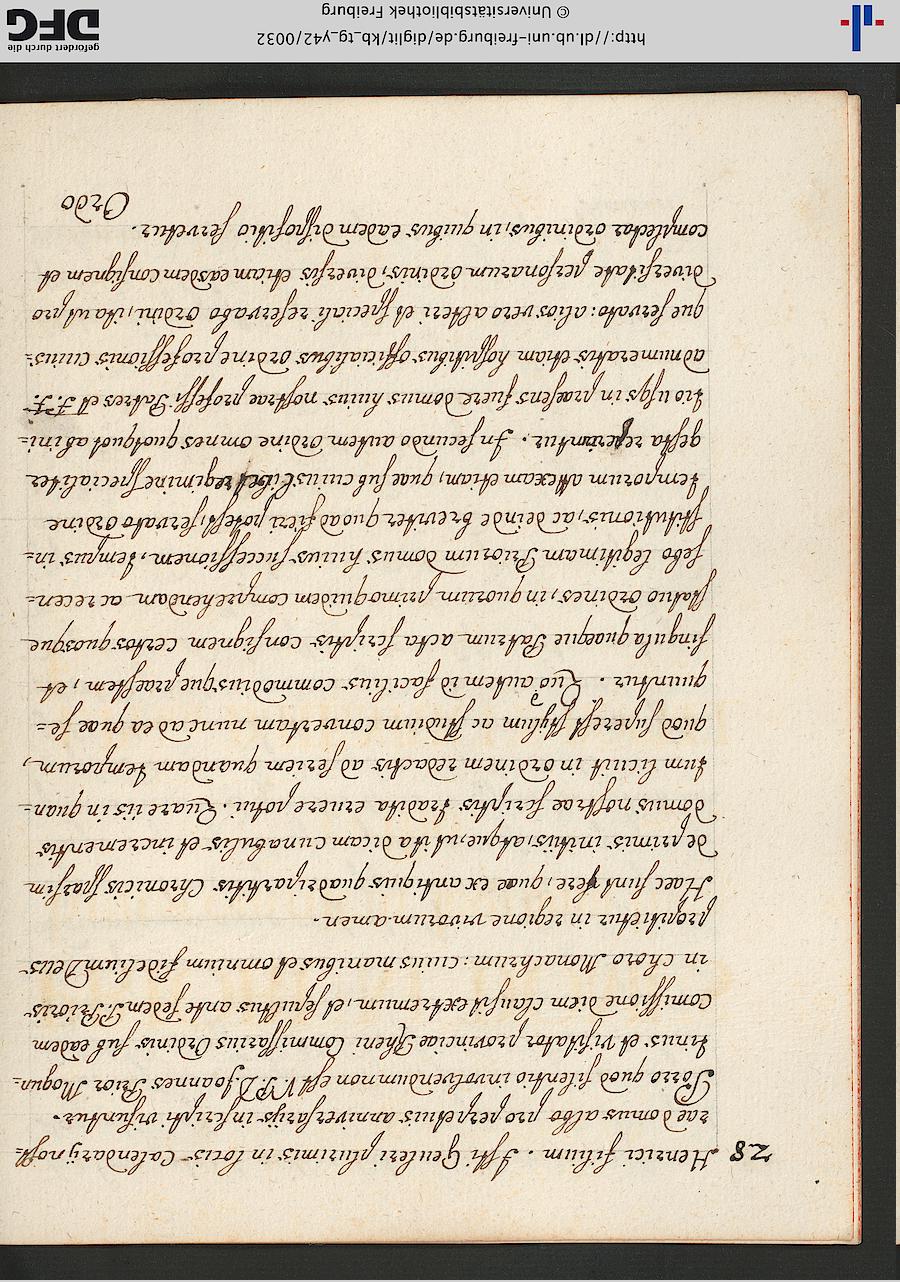 28
Henrici filium. Isti Geuleri plurimis in locis Calendarij nost=
rae domus albo pro perpetuis anniversarijs inscripti visuntur.
Porro quod silentio involvendum non est V.P.D. Joannes Prior Mogun=
tinus et Visitator provinciae Rheni Commissarius Ordinis sub eadem
Comissione diem clausit extremum, et sepultus ante sedem P. Prioris
in choro Monachrum: cuius manibus et omnium fidelium Deus
propitietur in regione vivorum. amen.
Haec sunt fere, quae ex antiquis quadripartitis Chronicis sparsim
de primis initiis, atque, ut ita dicam cunabulis et incrementis
domus nostrae scriptis tradita eruere potui. Quare iis in quan=
tum licuit in ordinem redactis ad seriem quandam temporum,
quod superest stylum ac studium convertam nunc ad ea quae se=
quuntur. Quo autem id facilius commodiusque praestem, et
singula quaeque Patrum acta scriptis consignem certos quosque
statuo ordines, in quorum primo quidem comprehendam ac recen=
sebo legitimam Priorum domus huius successionem, tempus in=
stitutionis, ac deinde breviter quoad fieri potest, servato ordine
temporum attexam etiam, quae sub cuiuslibet regimine specialiter
gesta reperiuntur. In secundo autem ordine omnes quotquot ab ini=
tio usque in praesens fuere domus huius nostrae professi Patres et F.F.
adnumeratis etiam hospitibus officialibus ordine professionis cuius=
que servato: alios vero alteri et speciali reservabo ordini, ita ut pro
diversitate personarum ordinis, diversis etiam easdem consignem et
complectar ordinibus, in quibus eadem dispositio servetur.
Ordo
http://dl.ub.uni-freiburg.de/diglit/kb_tg_y42/0032
© Universitätsbibliothek Freiburg
gefördert durch die
DFG